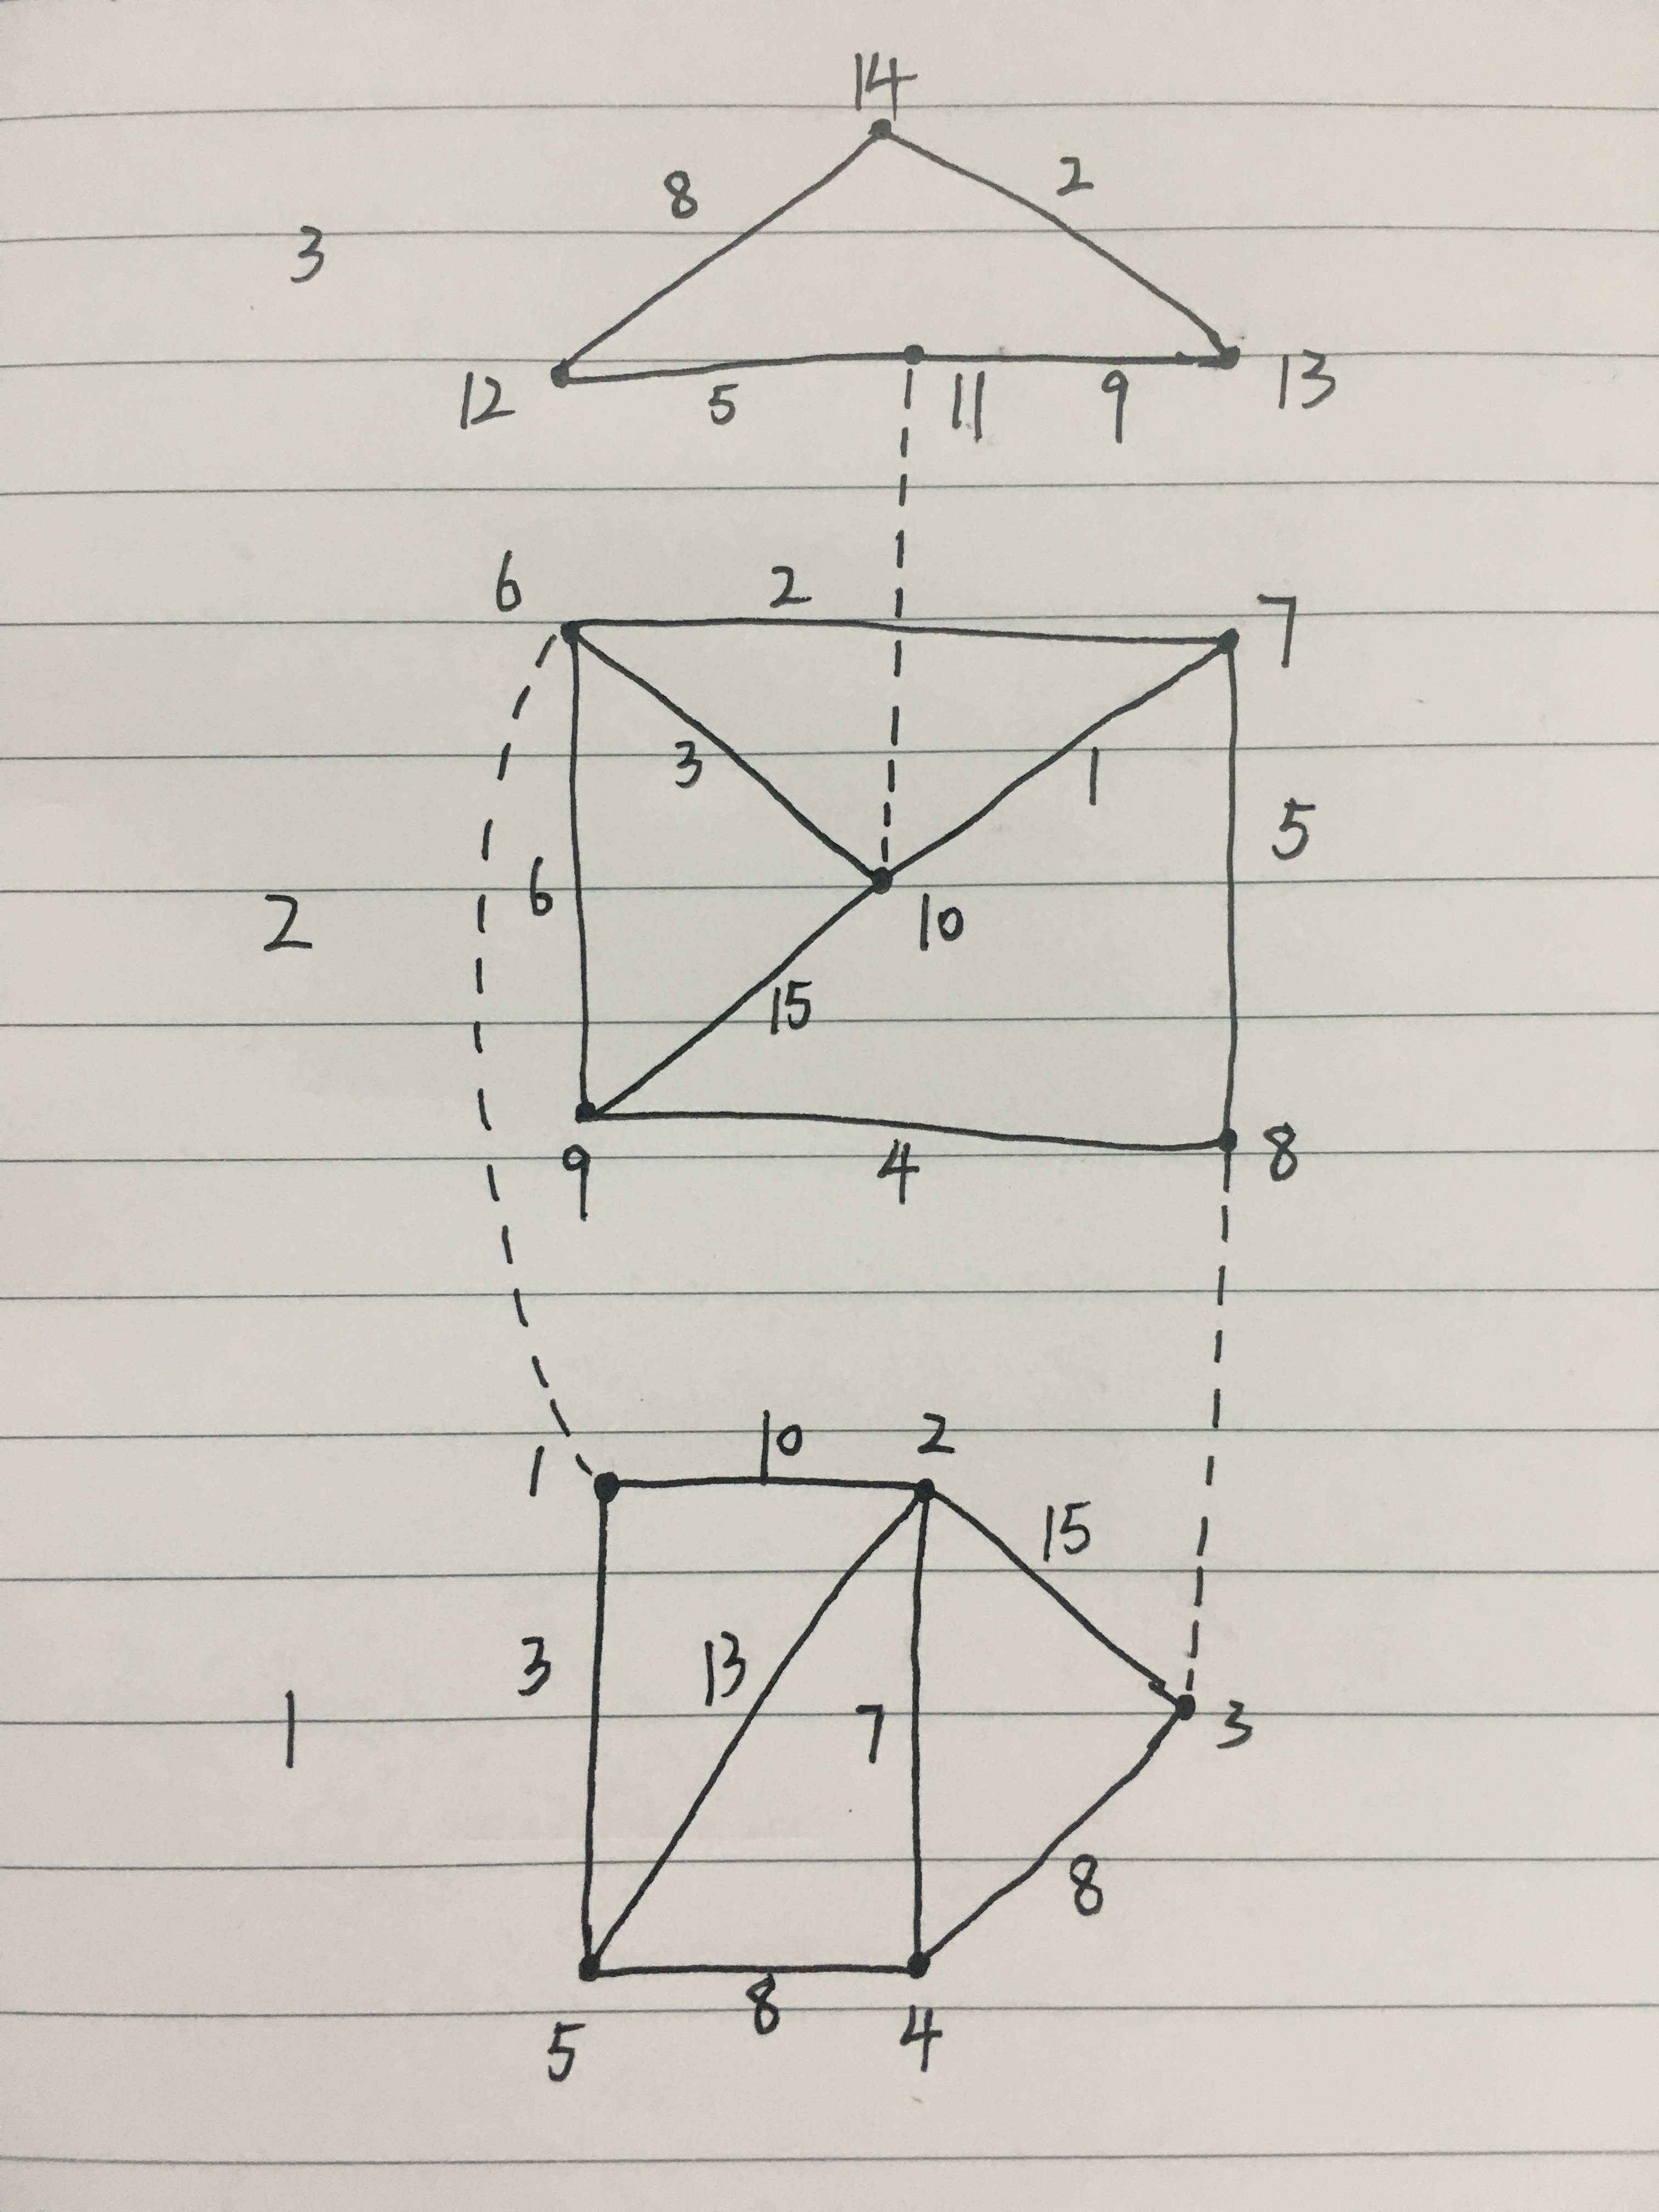 14
8 2
3
12 5 11 9 13
6 2 7
3 1
5
6
2 10
15
9 4 8
1 10 2
15
3 13 7 3
1
8
8
5 4